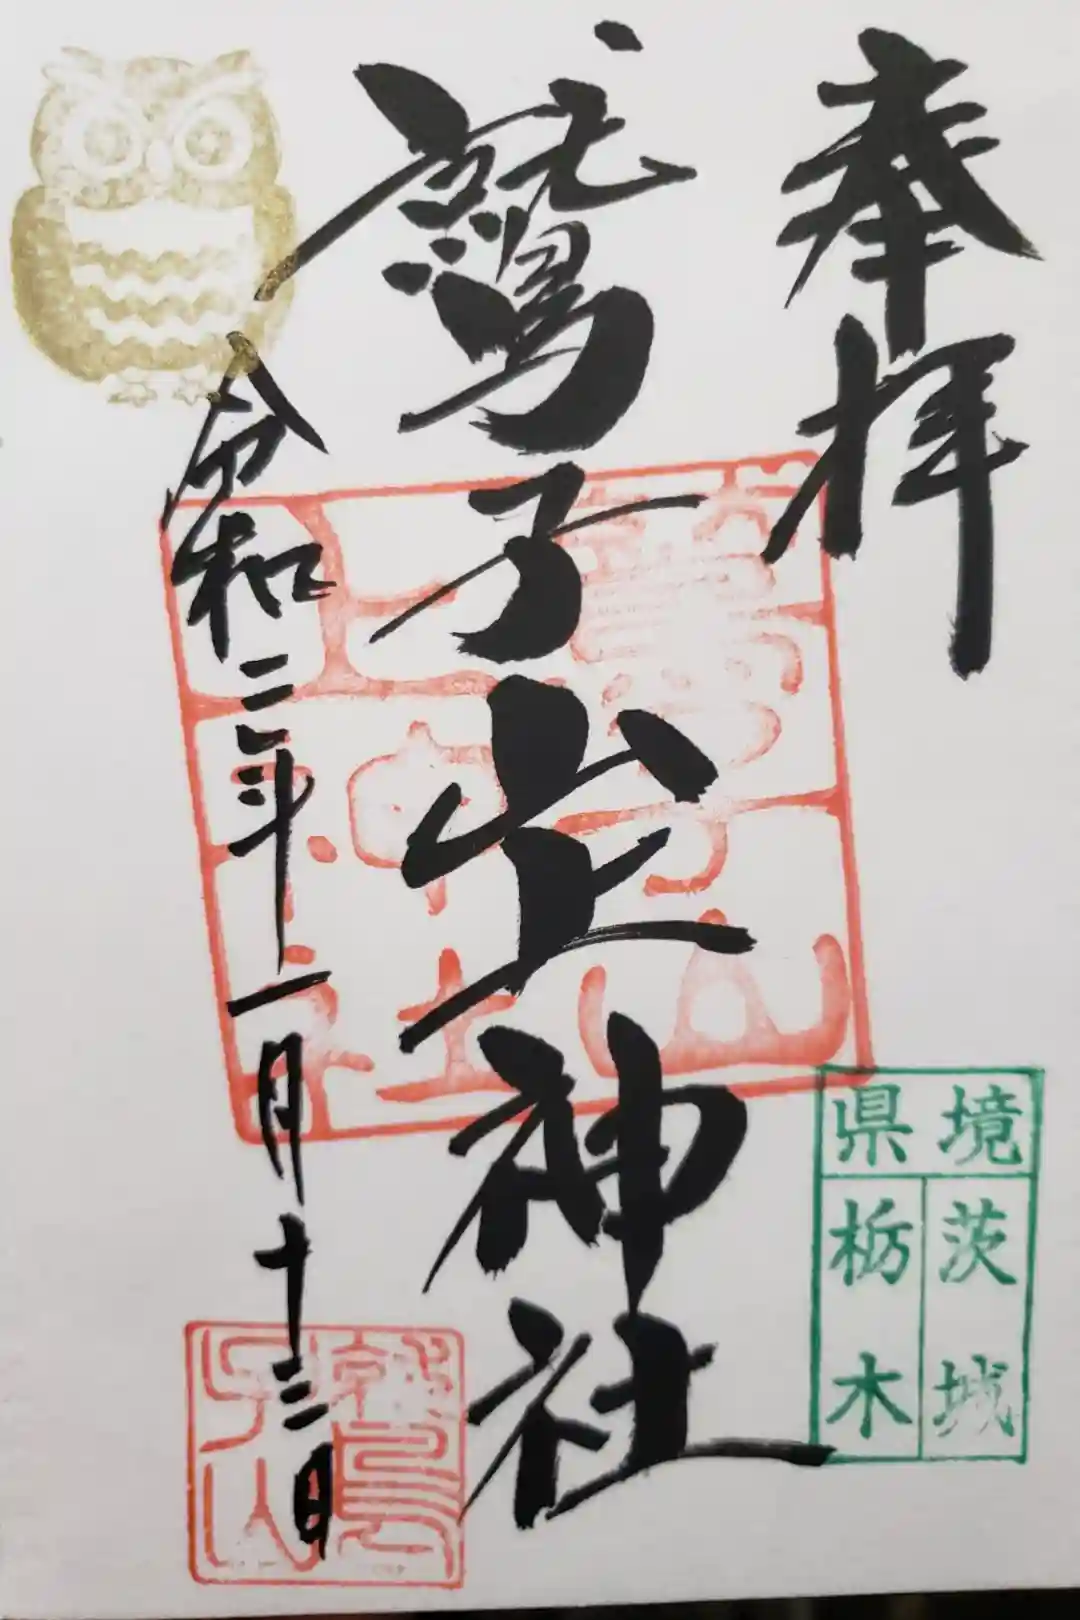 奉拝
鷲子山上神社
令和二年一月十三日
境 茨城
県 栃木
鷲子山